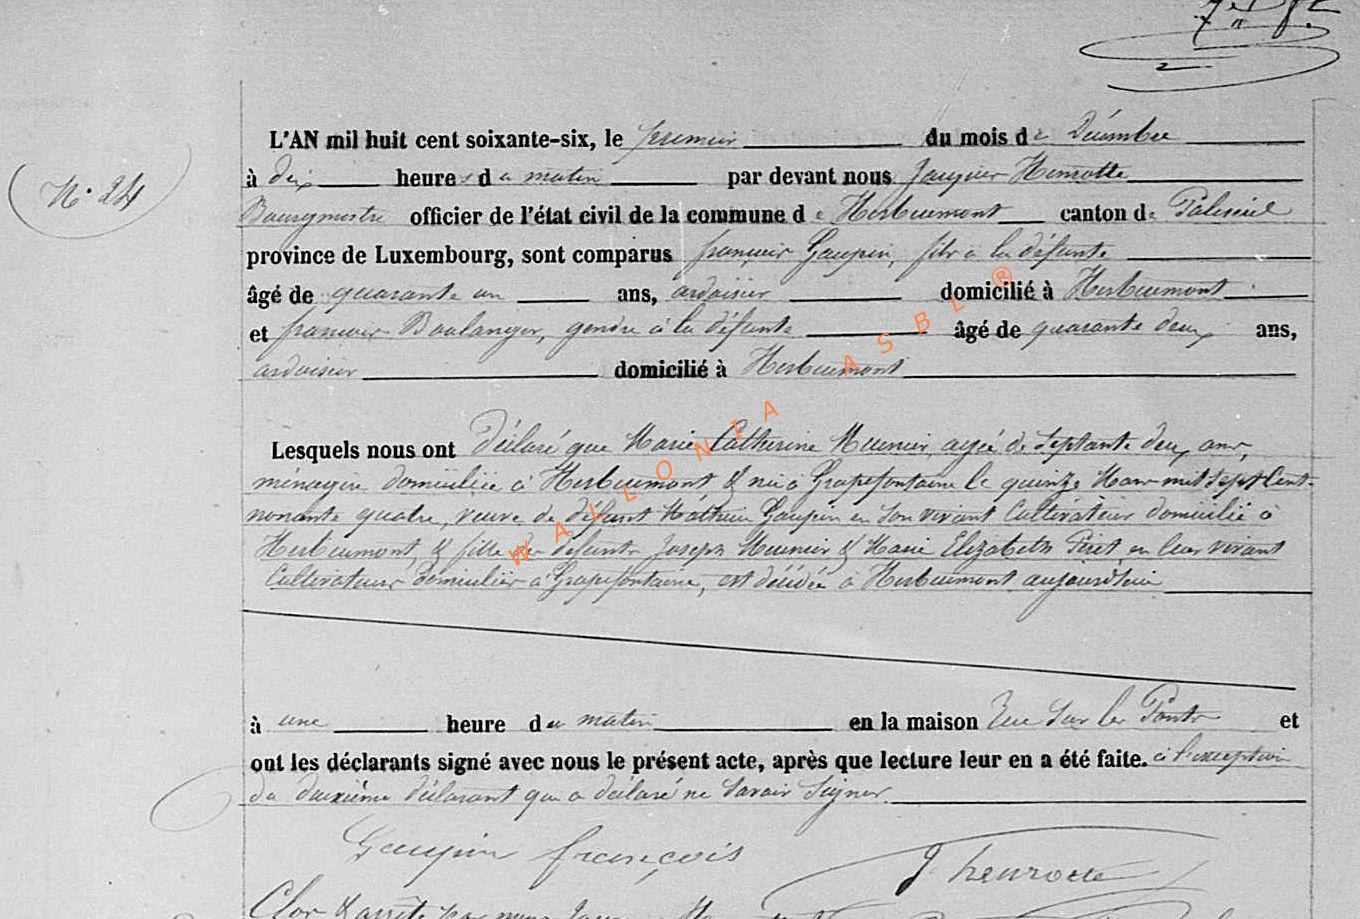 N° 24
L'AN mil huit cent soixante-six, le premier du mois de Décembre
à dix heures du matin par devant nous Jacques Henrotte
Bourgmestre officier de l'état civil de la commune de Herbeumont canton de Paliseul
province de Luxembourg, sont comparus françois Gaupin, fils à la défunte
âgé de quarante un ans, ardoisier domicilié à Herbeumont
et francois Boulanger, gendre à la défunte âgé de quarante deux ans,
ardoisier domicilié à Herbeumont
Lesquels nous ont déclaré que Marie Catherine Meunier, agée de septante deux ans,
ménagère domiciliée à Herbeumont & née à Grapefontaine le quinze Mars mil sept cent
nonante quatre, veuve de défunt Gaupin en son vivant Cultivateur domicilié à
Herbeumont, & fille des défunts Joseph Meunier & Marie Elizabeth Piret en leur vivant
Cultivateurs domiciliés à Grapefontaine, est décédée à Herbeumont aujourd'hui
à une heure du matin en la maison Rue Sur les Ponts et
ont les déclarants signé avec nous le présent acte, après que lecture leur en a été faite. à l'exception
du deuxième déclarant qui a déclaré ne savoir signer
Gaupin françois J henrotte
Clos & arrêté par nous
WALLONIA ASBL ®